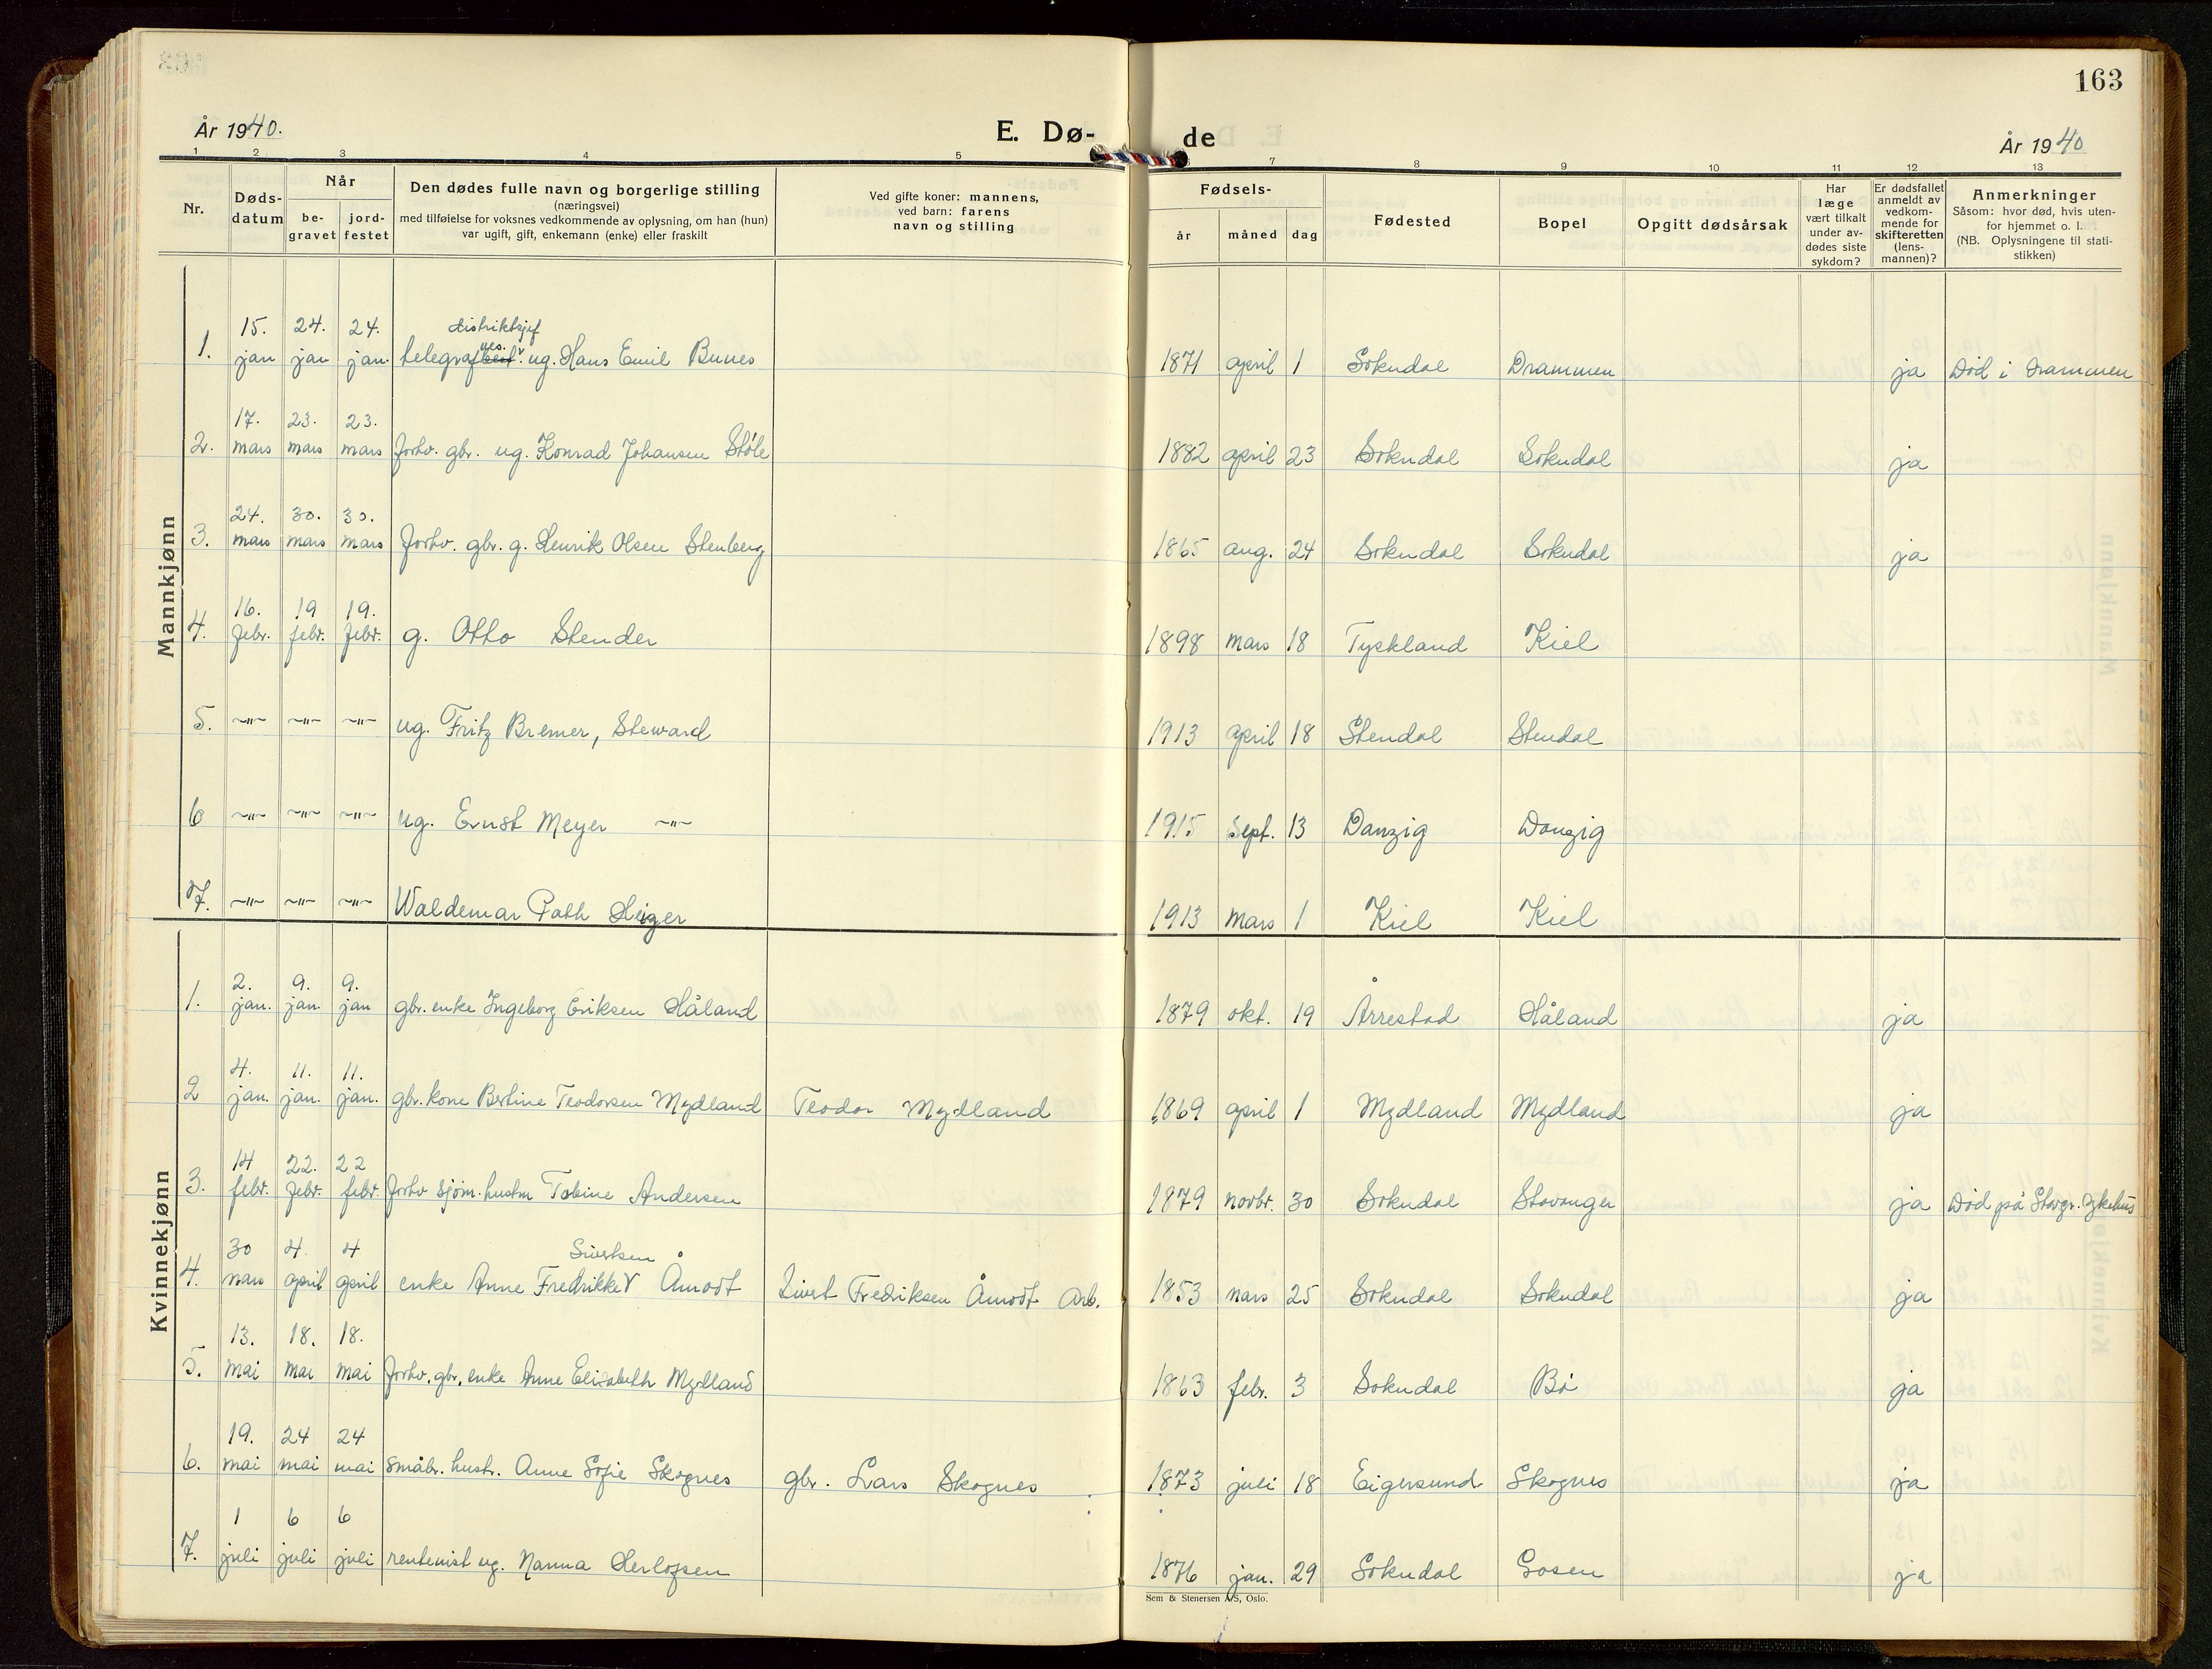 163
År 1940.
E. Dø-
de
År 1940
1 2 3 4 5 7 8 9 10 11 12 13
Nr.
Døds-
datum
Når
be-
gravet
jord-
festet
Den dødes fulle navn og borgerlige stilling
(næringsvei)
med tilføielse for voksnes vedkommende av oplysning, om han (hun)
var ugift, gift, enkemann (enke) eller fraskilt
Ved gifte koner: mannens,
ved barn: farens
navn og stilling
Fødsels-
år måned dag
Fødested
Bopel
Opgitt dødsårsak
Har
læge
vært tilkalt
under av-
dødes siste
sykdom?
Er dødsfallet
anmeldt av
vedkom-
mende for
skifteretten
(lens-
mannen)?
Anmerkninger
Såsom: hvor død, hvis uten-
for hjemmet o. l.
(NB. Oplysningene til stati-
stikken)
Mannkjønn
15. 24. 24. distriktsjef
1. jan jan jan. telegraf ug. Hans Emil Bunes 1871 april 1 Sokndal Drammen ja Død i Drammen
17. 23. 23.
2. mars mars mars Forhv. gbr. ug. Konrad Johansen Støle 1882 april 23 Sokndal Sokndal ja
24. 30. 30.
3. mars mars mars Forhv. gbr. g. Henrik Olsen Stenberg 1865 aug. 24 Sokndal Sokndal ja
16. 19 19.
4. febr. febr. febr. g. Otto Stender 1898 mars 18 Tyskland Kiel
5. -"- -"- -"- ug. Fritz Bremer, Steward 1913 april 18 Stendal Stendal
6 -"- -"- -"- ug. Ernst Meyer -"- 1915 Sept. 13 Danzig Danzig
7. -"- -"- -"- Waldemar Path Heiger 1913 mars 1 Kiel Kiel
Kvinnekjønn
2. 9. 9.
1. jan. jan. jan gbr. enke Ingeborg Eriksen Håland 1879 okt. 19 Årrestad Håland ja
4. 11. 11.
2 jan. jan. jan. gbr. kone Bertine Teodorsen Mydland Teodor Mydland 1869 april 1 Mydland Mydland ja
14 22. 22
3. febr. febr. febr. Forhv sjøm. hustru Tobine Andersen 1879 novbr. 30 Sokndal Stavanger ja Død på Stavgr. sykehus
30 4. 4 Sivertsen
4. mars april april enke Anne Fredrikke V Åmodt Sivert Fredriksen Åmodt Arb. 1853 mars 25 Sokndal Sokndal ja
13. 18. 18.
5. mai mai mai Forhv. gbr. enke Anne Elisabeth Mydland 1863 febr. 3 Sokndal Bø ja
19. 24 24
6. mai mai mai småbr. hustr. Anne Sofie Skognes gbr. Lars Skognes 1873 juli 18 Eigersund Skognes ja
1 6 6
7. juli juli juli rentenist ug. Nanna Herlofsen 1876 jan. 29 Sokndal Gosen ja
Sem & Stenersen A/S, Oslo.